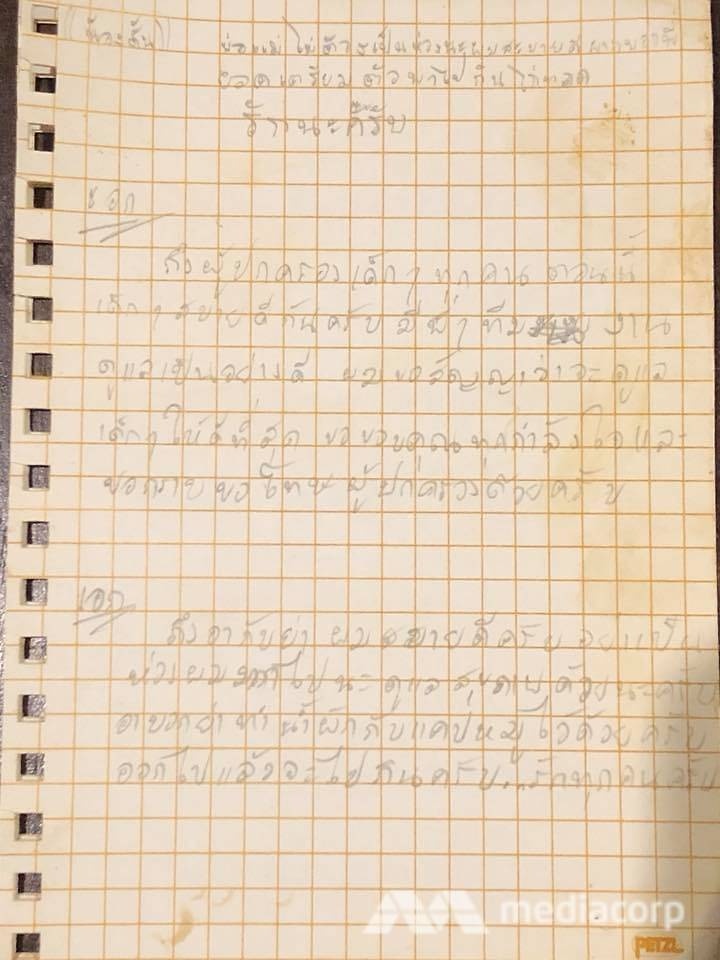 (น้องตั้น) พ่อแม่ ไม่ต้องเป็นห่วงนะผมสบายดี
ยอดเตรียมตัวพาไปกินไก่ทอด
รักนะครับ
เอก
ถึงผู้ปกครองเด็กๆทุกคน ตอนนี้
เด็กๆ สบายดีกันครับ มีพี่ๆทีม งาน
ดูแลเป็นอย่างดี ผมขอสัญญาว่าจะดูแล
เด็กๆให้ดีที่สุด ขอขอบคุณทุกกำลังใจและ
ขอกราบขอโทษผู้ปกครองด้วยครับ
เอก
ถึงอากับย่า ผมสบายดีครับ อย่าเป็น
ห่วงผมมากไปนะ ดูแลสุขภาพด้วยนะครับ
อาบอกย่าทำน้ำผักกับแคปหมูไว้ด้วยครับ
ออกไปแล้วจะไปกินครับ...รักทุกคนครับ
mediacorp
PETZL